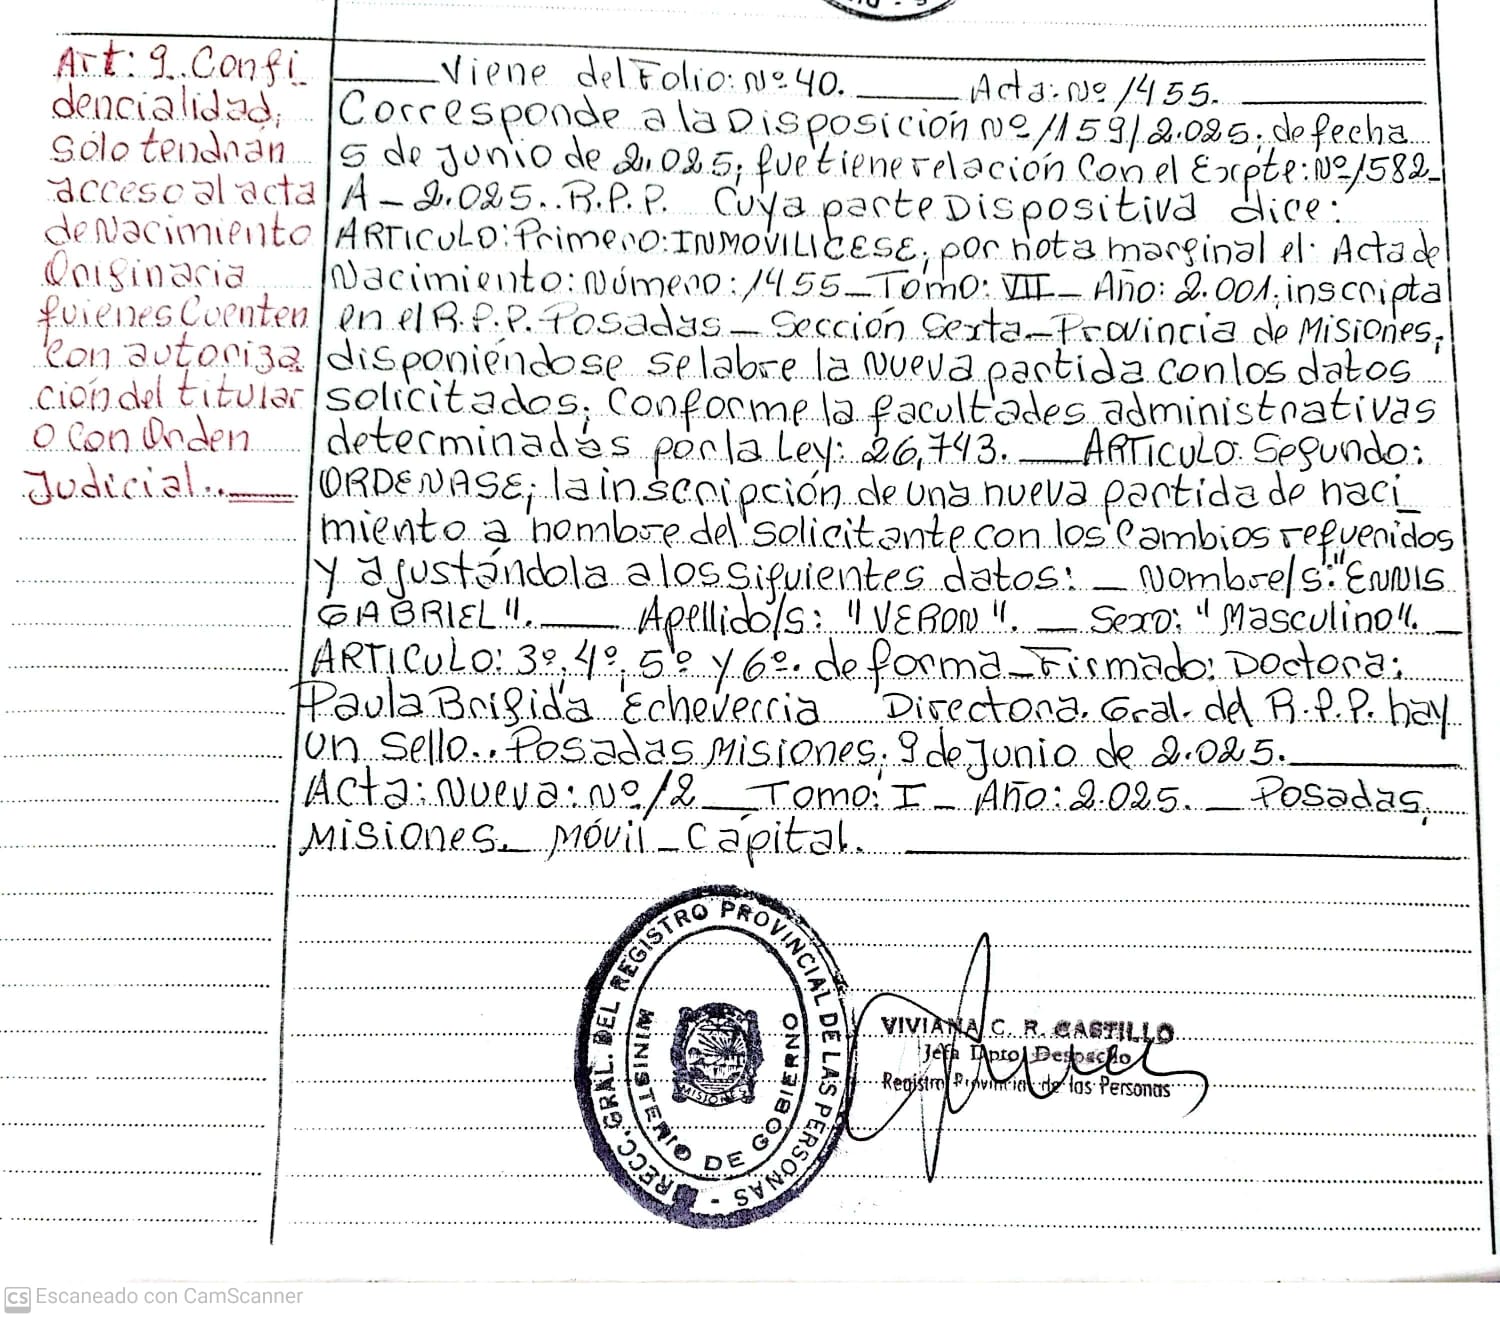 Art: 9. Confi
dencialidad,
Sólo tendrán
acceso al acta
de Nacimiento
Originaria
quienes Cuenten
Con autoriza
ción del titular
o Con Orden
Judicial..
Viene del Folio: Nº 40. Acta: Nº 1455.
Corresponde a la Disposición Nº 1159/2.025; de fecha
5 de Junio de 2.025; que tiene relación Con el Expte: Nº 1582-
A - 2.025.. R.P.P. Cuya parte Dispositiva dice:
ARTICULO: Primero: INMOVILICESE, por nota marginal el: Acta de
Nacimiento: Número: 1455 - Tomo: VII - Año: 2.001, inscripta
en el R.P.P. Posadas - Sección Sexta - Provincia de Misiones,
disponiéndose se labre la Nueva partida con los datos
solicitados; Conforme la facultades administrativas
determinadas por la Ley: 26,743. ARTICULO: Segundo:
ORDENASE; la inscripción de una nueva partida de naci_
miento a nombre del solicitante con los Cambios requeridos
y ajustándola a los siguientes datos: _ Nombre/s: "ENNIS
GABRIEL". Apellido/s: "VERON". _ Sexo: "Masculino". _
ARTICULO: 3º, 4º, 5º y 6º. de forma - Firmado: Doctora:
Paula Brigida Echeverria Directora. Gral. del R.P.P. hay
un Sello.. Posadas Misiones, 9 de Junio de 2.025.
Acta: Nueva: Nº 12 _ Tomo: I - Año: 2.025. _ Posadas,
Misiones. Móvil - Capital.
RECC. GRAL. DEL REGISTRO PROVINCIAL DE LAS PERSONAS -
MINISTERIO DE GOBIERNO
MISIONES
VIVIANA C. R. CASTILLO
Jefa Dpto Despacho
Registro Provincial de las Personas
CS Escaneado con CamScanner